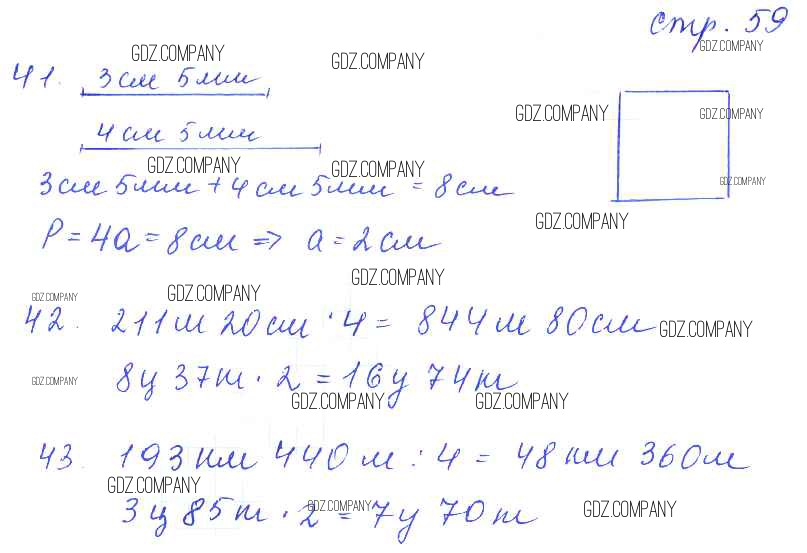 стр. 59
GDZ.COMPANY
GDZ.COMPANY
GDZ.COMPANY
41. 3 см 5 мм
GDZ.COMPANY
GDZ.COMPANY
4 см 5 мм
GDZ.COMPANY
GDZ.COMPANY
GDZ.COMPANY
3 см 5 мм + 4 см 5 мм = 8 см
GDZ.COMPANY
P = 4a = 8 см => a = 2 см
GDZ.COMPANY
GDZ.COMPANY
GDZ.COMPANY
42. 211 м 20 см · 4 = 844 м 80 см
GDZ.COMPANY
GDZ.COMPANY
8 ц 37 т · 2 = 16 ц 74 т
GDZ.COMPANY
GDZ.COMPANY
43. 193 км 440 м : 4 = 48 км 360 м
GDZ.COMPANY
3 ц 85 т · 2 = 7 ц 70 т
GDZ.COMPANY
GDZ.COMPANY